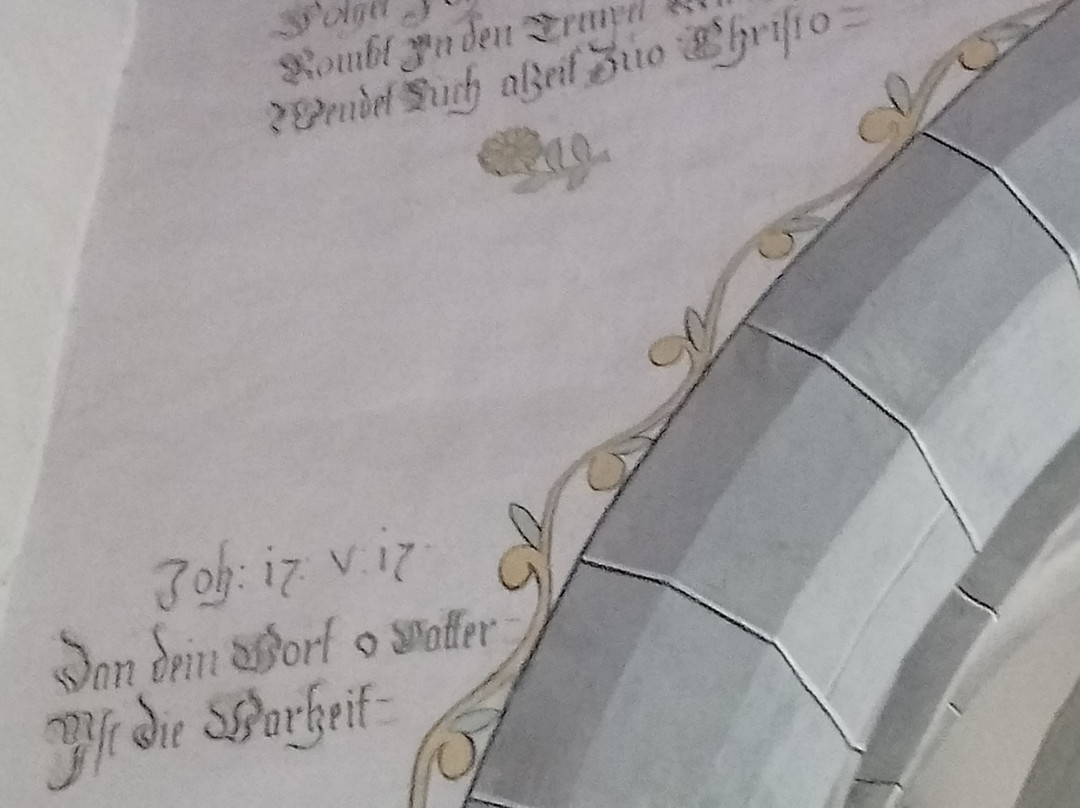 Folget
Kombt Jn den Tempel
Wendet Euch alzeit Zuo Christo =
Joh: 17. V. 17.
Dan dein Wort o Vatter =
Jst die Warheit =